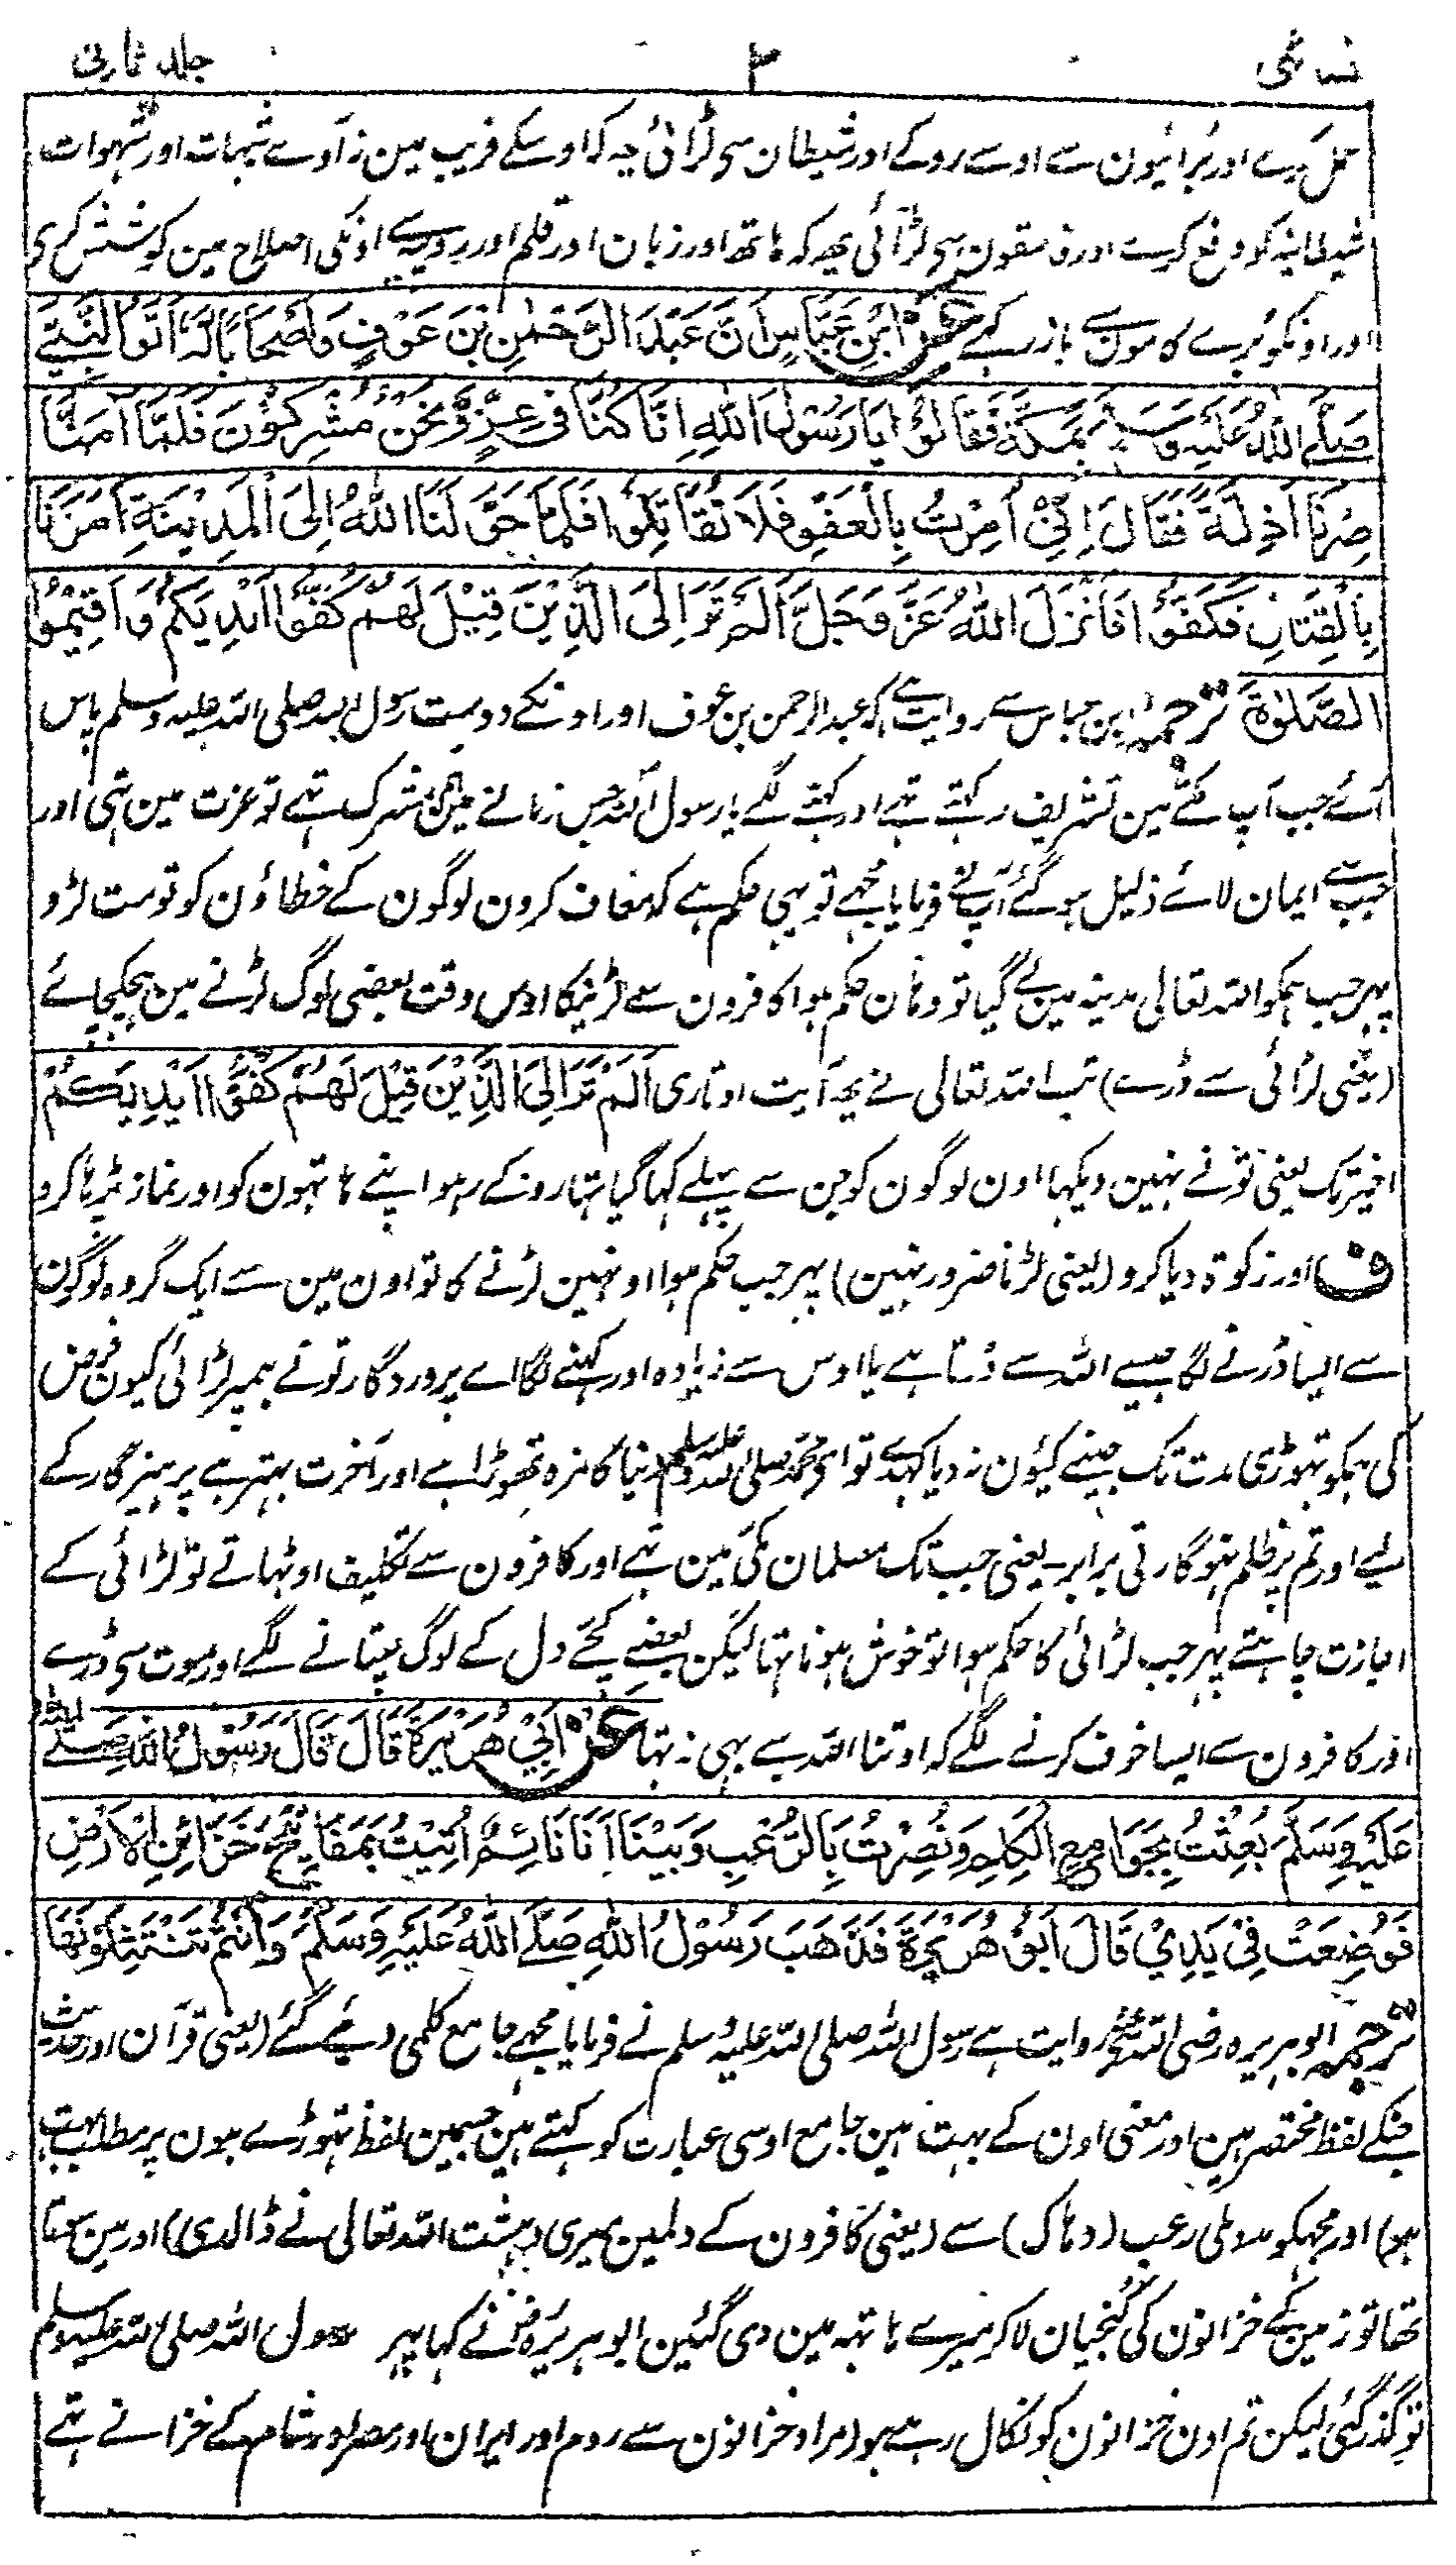 نسائی ۳ جلد ثانی
عمل کرے اور برائیون سے اوسے روکے اور شیطان سی لڑائی یہ کہ اوسکے فریب مین نہ آوے شبہات اور شہوات
شیطانیہ کو دفع کرے اور فاسقون سی لڑائی یہ کہ ہاتھ اور زبان اور قلم اور روپیہ سے اونکی اصلاح مین کوشش کری
اور اونکو برے کامون سے باز رکہے عَنْ ابْنِ عَبَّاسٍ اَنَّ عَبْدَ الرَّحْمٰنِ بْنَ عَوْفٍ وَاَصْحَابًا لَهٗ اَتَوُا النَّبِيَّ
صَلَّى اللّٰهُ عَلَيْهِ وَسَلَّمَ بِمَكَّةَ فَقَالُوْا يَا رَسُوْلَ اللّٰهِ اِنَّا كُنَّا فِيْ عِزٍّ وَّنَحْنُ مُشْرِكُوْنَ فَلَمَّا اٰمَنَّا
صِرْنَا اَذِلَّةً فَقَالَ اِنِّيْ اُمِرْتُ بِالْعَفْوِ فَلَا تُقَاتِلُوْا فَلَمَّا حَوَّلَنَا اللّٰهُ اِلَى الْمَدِيْنَةِ اَمَرَنَا
بِالْقِتَالِ فَكَفُّوْا فَاَنْزَلَ اللّٰهُ عَزَّ وَجَلَّ اَلَمْ تَرَ اِلَى الَّذِيْنَ قِيْلَ لَهُمْ كُفُّوْا اَيْدِيَكُمْ وَاَقِيْمُوا
الصَّلٰوةَ ترجمہ ابن عباس سے روایت ہے کہ عبدالرحمن بن عوف اور اونکے دوست رسول اللہ صلی اللہ علیہ وسلم پاس
آئے جب آپ مکے مین تشریف رکہتے تہے اور کہنے لگے یا رسول اللہ جس زمانے مین ہم مشرک تہے تو عزت مین تہی اور
جب سے ایمان لائے ذلیل ہو گئے آپ نے فرمایا مجہے تو یہی حکم ہے کہ معاف کرون لوگون کے خطاؤن کو تو مت لڑو
پہر جب ہمکو اللہ تعالی مدینہ مین لے گیا تو وہان حکم ہوا کافرون سے لڑنیکا اوس وقت بعضی لوگ لڑنے مین ہچکچائے
(یعنی لڑائی سے ڈرے) تب اللہ تعالی نے یہ آیت اوتاری اَلَمْ تَرَ اِلَى الَّذِيْنَ قِيْلَ لَهُمْ كُفُّوْا اَيْدِيَكُمْ
اخیر تک یعنی تو نے نہین دیکہا اون لوگون کو جن سے پہلے کہا گیا تہا روکے رہو اپنے ہاتہون کو اور نماز پڑہا کرو
ف اور زکوۃ دیا کرو (یعنی لڑنا ضرور نہین) پہر جب حکم ہوا اونہین لڑنے کا تو اون مین سے ایک گروہ لوگون
سے ایسا ڈرنے لگا جیسے اللہ سے ڈرتا ہے یا اوس سے زیادہ اور کہنے لگا اے پروردگار تو نے ہمپر لڑائی کیون فرض
کی ہمکو تہوڑی مدت تک جینے کیون نہ دیا کہدے تو اے محمد صلی اللہ علیہ وسلم دنیا کا مزہ تھوڑا ہے اور آخرت بہتر ہے پرہیزگار کے
لیے اور تم پر ظلم نہوگا رتی برابر۔ یعنی جب تک مسلمان مکی مین تہے اور کافرون سے تکلیف اوٹہاتے تو لڑائی کے
اجازت چاہتے پہر جب لڑائی کا حکم ہوا تو خوش ہونا تہا لیکن بعضے کچے دل کے لوگ پچتانے لگے اور موت سی ڈرے
اور کافرون سے ایسا خوف کرنے لگے کہ اوتنا اللہ سے بہی نہ تہا عَنْ اَبِيْ هُرَيْرَةَ قَالَ قَالَ رَسُوْلُ اللّٰهِ صَلَّى اللّٰهُ
عَلَيْهِ وَسَلَّمَ بُعِثْتُ بِجَوَامِعِ الْكَلِمِ وَنُصِرْتُ بِالرُّعْبِ وَبَيْنَا اَنَا نَائِمٌ اُتِيْتُ بِمَفَاتِيْحِ خَزَائِنِ الْاَرْضِ
فَوُضِعَتْ فِيْ يَدِيْ قَالَ اَبُوْ هُرَيْرَةَ فَذَهَبَ رَسُوْلُ اللّٰهِ صَلَّى اللّٰهُ عَلَيْهِ وَسَلَّمَ وَاَنْتُمْ تَنْتَثِلُوْنَهَا
ترجمہ ابو ہریرہ رضی اللہ عنہ روایت ہے رسول اللہ صلی اللہ علیہ وسلم نے فرمایا مجہے جامع کلمی دیئے گئے (یعنی قرآن اور حدیث
جنکے لفظ مختصر ہین اور معنی اون کے بہت ہین جامع اوسی عبارت کو کہتے ہین جسمین لفظ تہوڑے ہون پر مطلب بہت
ہو) اور مجہکو مدد ملی رعب (دھاک) سے (یعنی کافرون کے دلمین میری دہشت اللہ تعالی نے ڈالدی) اور مین سوتا
تھا تو زمین کے خزانون کی کنجیان لاکر میرے ہاتہہ مین دی گئین ابو ہریرہ رض نے کہا پہر رسول اللہ صلی اللہ علیہ وسلم
تو گذر گئی لیکن تم اون خزانون کو نکال رہے ہو (مراد خزانون سے روم اور ایران اور مصر اور شام کے خزانے تہے